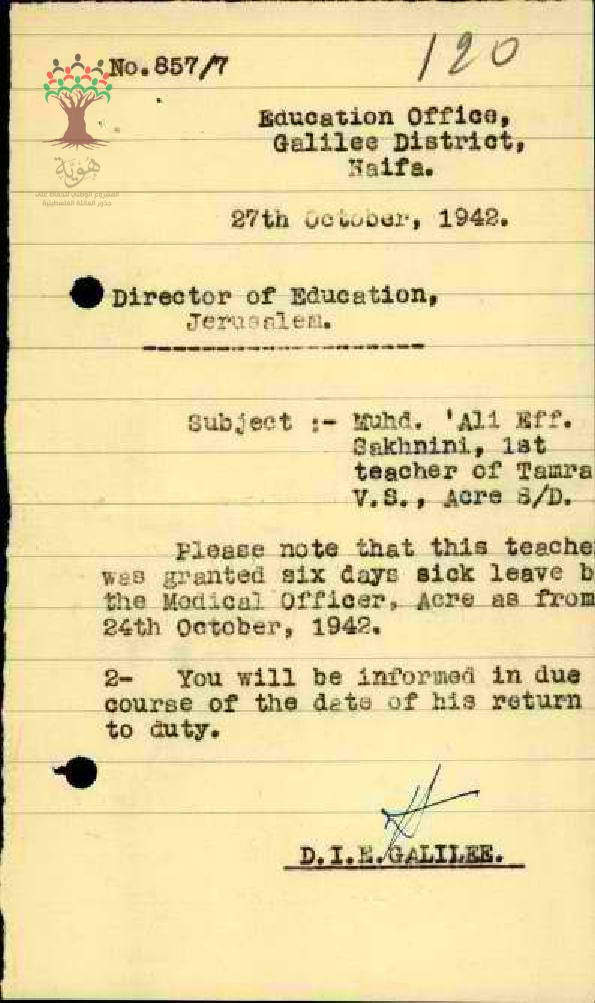 No.857/7
120
هوية
المشروع الوطني للحفاظ على
جذور العائلة الفلسطينية
Education Office,
Galilee District,
Haifa.
27th October, 1942.
Director of Education,
Jerusalem.
Subject :- Muhd. 'Ali Eff.
Sakhnini, 1st
teacher of Tamra
V.S., Acre S/D.
Please note that this teache
was granted six days sick leave b
the Medical Officer, Acre as from
24th October, 1942.
2- You will be informed in due
course of the date of his return
to duty.
D.I.E.GALILEE.